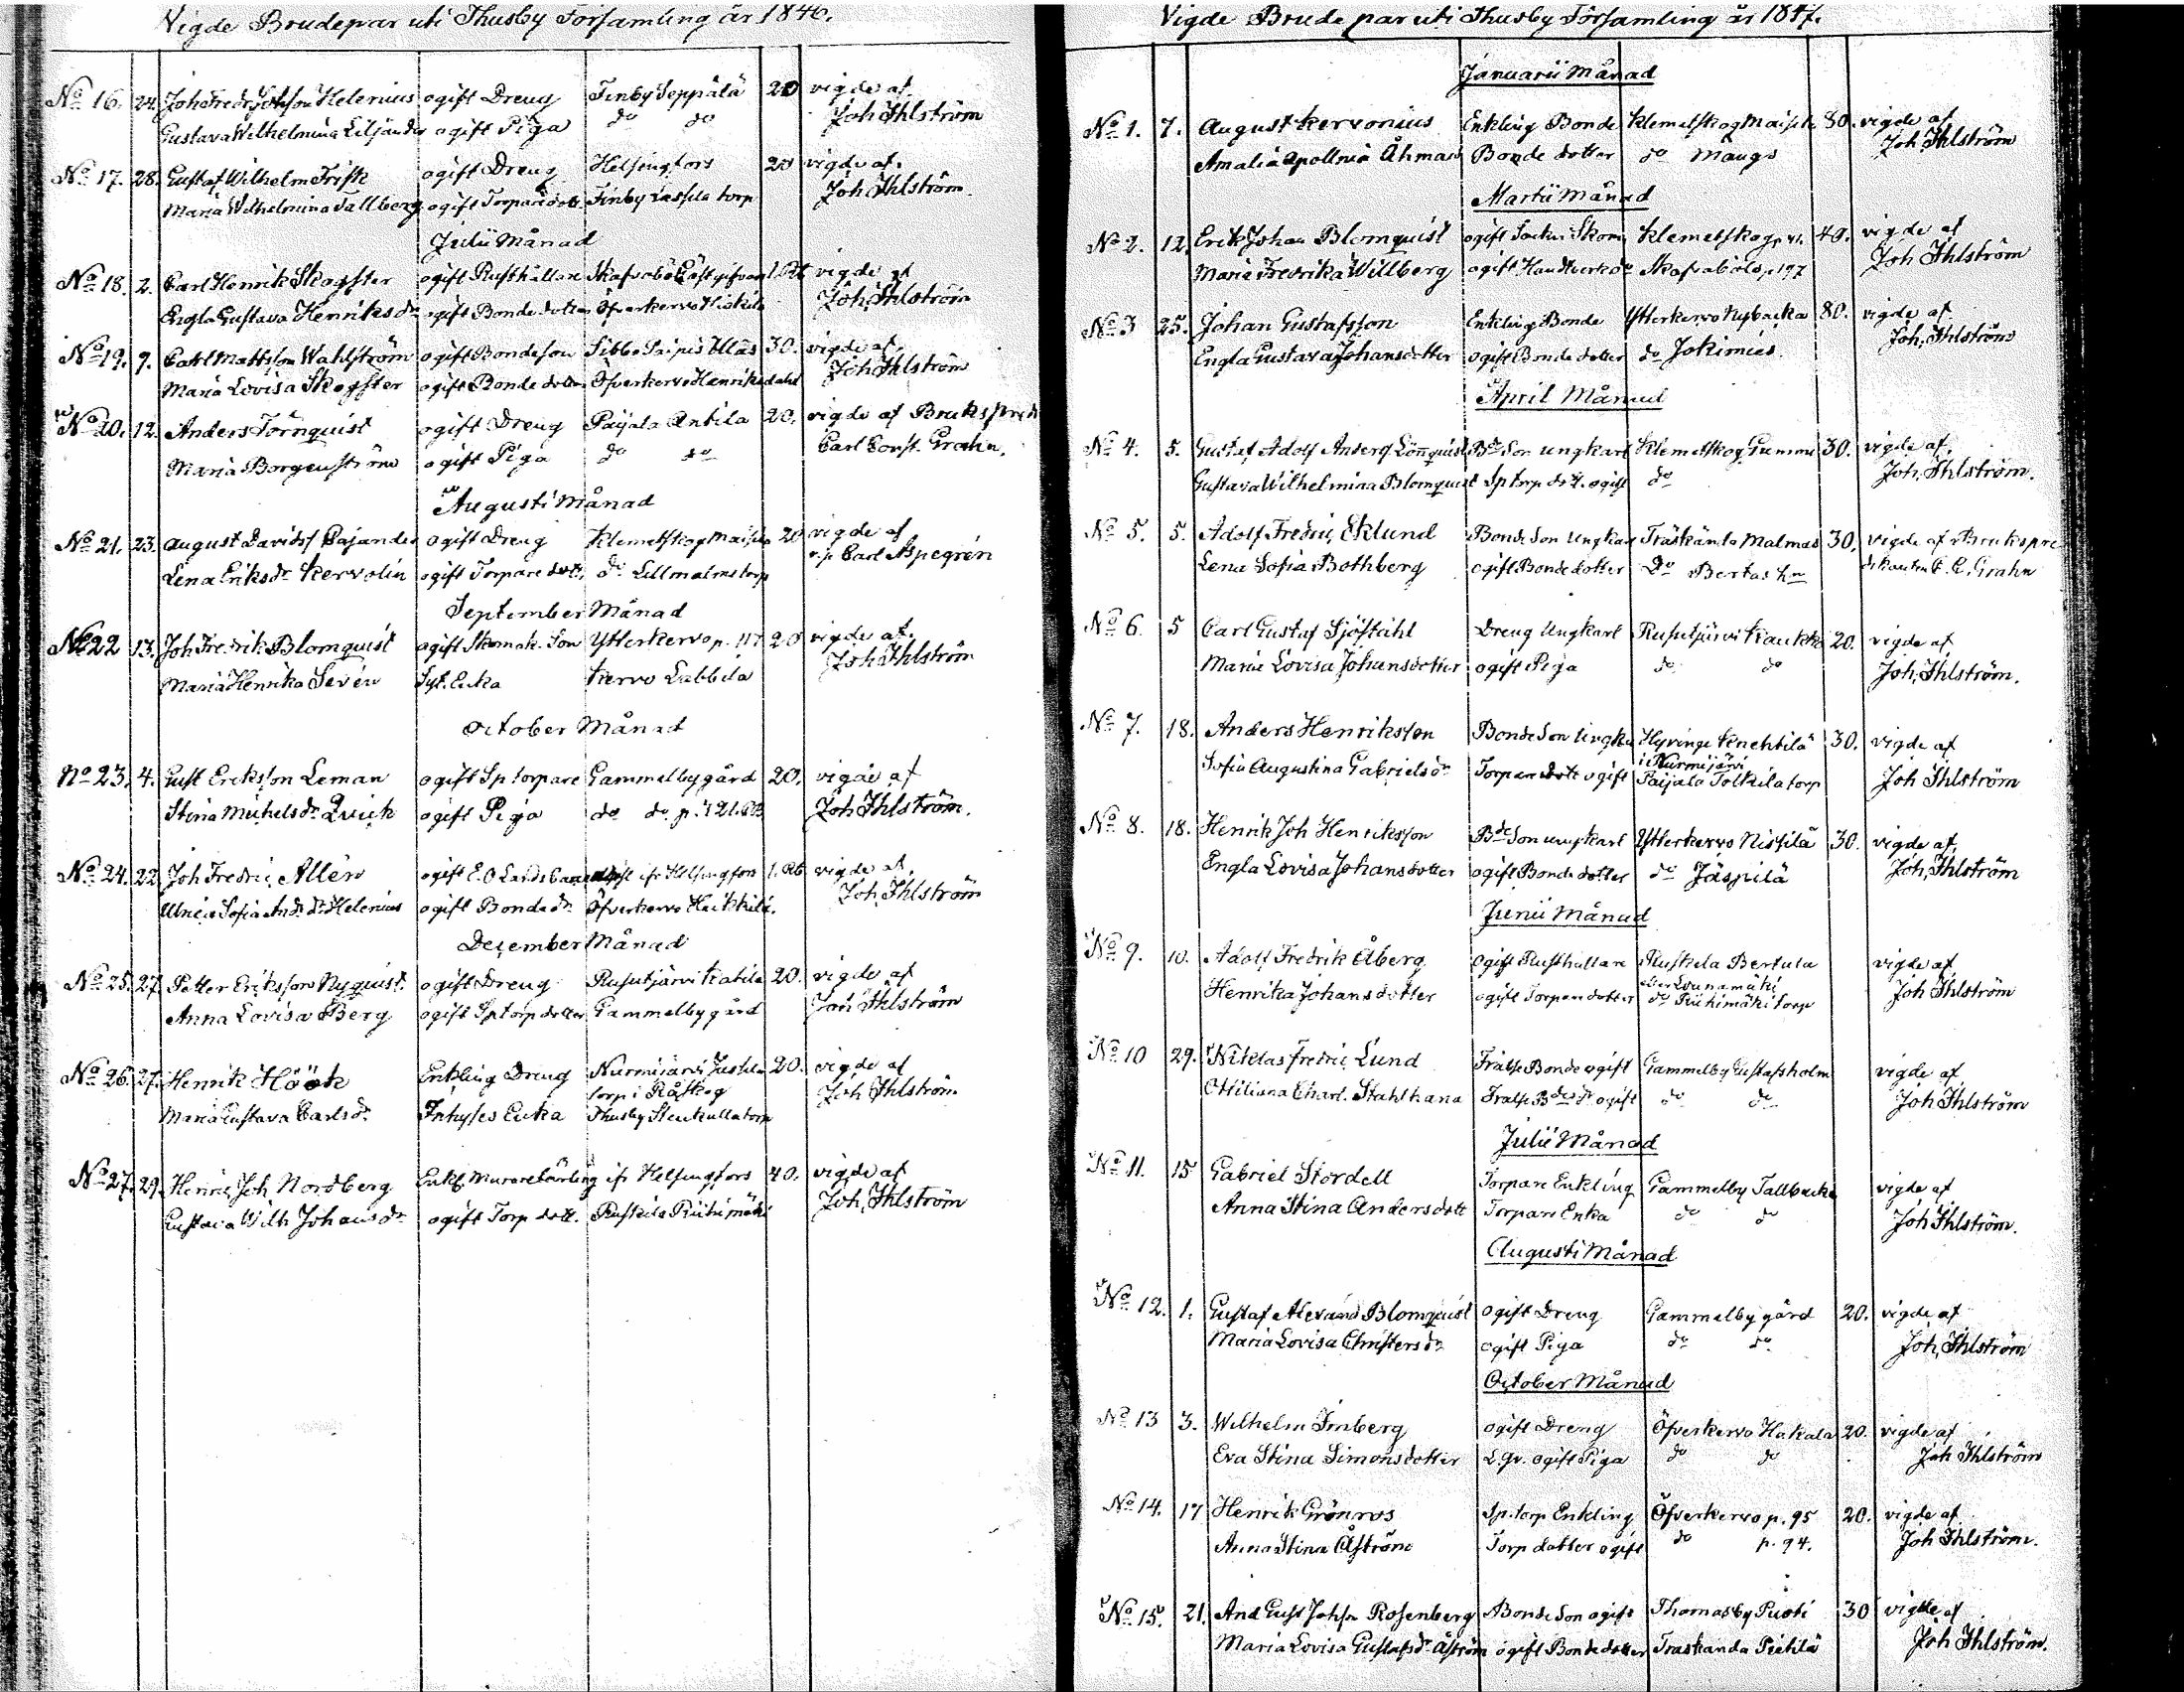 Vigde Brudepar uti Thusby Församling år 1846.
No 16. 24. Joh Fredr Johsson Helenius ogift Dreng Finby Seppälä 20 vigde af
Gustava Wilhelmina Liljander ogift Piga do do Joh Ihlström
No 17. 28. Gustaf Wilhelm Frisk ogift Dreng Helsingfors 20 vigde af
Maria Wilhelmina Tallberg ogift Torpare dott. Finby Lassila torp Joh Ihlström
Julii Månad
No 18. 2. Carl Henrik Skogster ogift Rusthållare 1 Rb vigde af
Engla Gustava Henriksdr ogift Bonde dotter Öfverkervo Joh Ihlström
No 19. 9. Carl Mattsson Wahlström ogift Bondeson Sibbo 30. vigde af
Maria Lovisa Skogster ogift Bonde dotter Öfverkervo Henriksdahl Joh Ihlström
No 20. 12. Anders Törnquist ogift Dreng Paijala Antila 20. vigde af Brukspred
Maria Borgenström ogift Piga do do Carl Const. Grahn.
Augusti Månad
No 21. 23. August Davidss Cajander ogift Dreng Klemetskog 20 vigde af
Lena Eriksdr Kervolin ogift Torpare dott. do Lillmalms torp v.p Carl Aspegrén
September Månad
No 22 13. Joh Fredrik Blomquist ogift Skomak. Son Ytterkervo p. 117 20 vigde af
Maria Henrika Sevén Syt. Enka Kervo Labbila Joh Ihlström
October Månad
No 23. 4. Gust Eriksson Leman ogift Sp torpare Gammelby gård 20. vigde af
Stina Michelsdr Qvick ogift Piga do do p. 121. Joh Ihlström.
No 24. 22. Joh Fredric Allén ogift E.O ifr Helsingfors 1. Rb vigde af
Ulrica Sofia And. dr Helenius ogift Bonde dr Öfverkervo Heikkilä. Joh Ihlström
December Månad
No 25. 27 Petter Eriksson Nyquist. ogift Dreng Rusutjärvi Katila 20. vigde af
Anna Lovisa Berg ogift Sp torp dotter Gammelby gård Joh Ihlström
No 26. 27. Henrik Höök Enkling Dreng Nurmijärvi Jussila 20. vigde af
torp i Råskog
Maria Gustava Carlsdr Inhyses Enka Thusby Stenkulla torp Joh Ihlström
No 27. 29. Henric Joh Nordberg Enkl Muraretärling ifr Helsingfors 40. vigde af
Gustava Wilh Johansdr ogift Torp dott. Ruskila Riihimäki Joh Ihlström
Vigde Brude par uti Thusby Församling år 1847.
Januarii Månad
No 1. 7. August Kervonius Enkling Bonde Klemetskog 80. vigde af
Amalia Apollonia Åhman Bonde dotter do Maugs Joh Ihlström
Martii Månad
No 2. 12 Erik Johan Blomquist ogift Socken Skom Klemetskog 40. vigde af
Maria Fredrika Willberg ogift Skafvaböle p. 197 Joh Ihlström
No 3 25. Johan Gustafsson Enkling Bonde Ytterkervo Nybacka 80. vigde af
Engla Gustava Johansdotter ogift Bonde dotter do Jokimies. Joh Ihlström
April Månad
No 4. 5. Gustaf Adolf Anderss Lönnquist Bde Son ungkarl Klemetskog Gummi 30. vigde af
Gustava Wilhelmina Blomquist Sp torp dott. ogift do Joh Ihlström.
No 5. 5. Adolf Fredric Eklund Bonde Son Ungkarl Träskända Malmas 30. vigde af Brukspre
Lena Sofia Bothberg ogift Bonde dotter Do Bertas hn dikanten C. C. Grahn
No 6. 5 Carl Gustaf Sjöståhl Dreng Ungkarl Rusutjärvi Kaukko 20. vigde af
Maria Lovisa Johansdotter ogift Piga do do Joh Ihlström.
No 7. 18. Anders Henriksson Bonde Son Ungkarl Hyvinge Knehtilä 30. vigde af
i Nurmijärvi
Sofia Augustina Gabrielsdr Torpare dott ogift Paijala Tolkila torp Joh Ihlström
No 8. 18. Henrik Joh Henriksson Bde Son ungkarl Ytterkervo Nissilä 30. vigde af
Engla Lovisa Johansdotter ogift Bonde dotter do Jäspilä Joh Ihlström
Junii Månad
No 9. 10. Adolf Fredrik Åberg ogift Rusthållare Ruskela Bertula vigde af
eller Lounamäki
Henrika Johansdotter ogift Torpare dotter do Riihimäki torp Joh Ihlström
No 10 29. Niklas Fredric Lund Frälse Bonde ogift Gammelby Gustafsholm vigde af
Ottiliana Charl. Stahlhana Frälse Bdes dr ogift do do Joh Ihlström
Julii Månad
No 11. 15 Gabriel Stordell Torpare Enkling Gammelby Tallbacka vigde af
Anna Stina Andersdott Torpare Enka do do Joh Ihlström.
Augusti Månad
No 12. 1. Gustaf Alexand Blomquist ogift Dreng Gammelby gård 20. vigde af
Maria Lovisa Christersdr ogift Piga do do Joh Ihlström
October Månad
No 13 3. Wilhelm Imberg ogift Dreng Öfverkervo Hakala 20. vigde af
Eva Stina Simonsdotter L. gv. ogift Piga do do Joh Ihlström
No 14. 17 Henrik Grönros Sp. torp Enkling Öfverkervo p. 95 20. vigde af
Anna Stina Åström Torp dotter ogift do p. 94. Joh Ihlström.
No 15. 21. And Gust Johss Rosenberg Bonde Son ogift Thomasby Puoti 30 vigde af
Maria Lovisa Gustafsdr Åström ogift Bonde dotter Traskanda Pietilä Joh Ihlström.